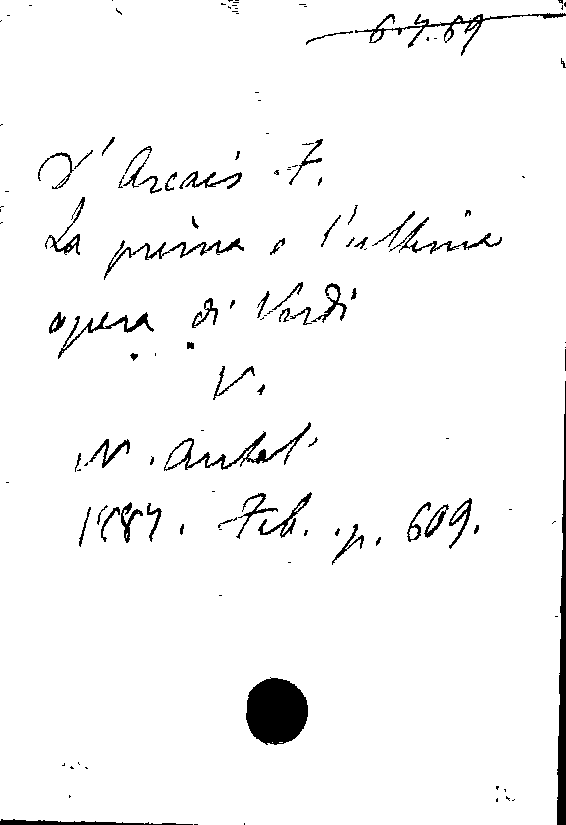 6.7.69
D'Arcais F.
La prima e l'ultima
opera di Verdi
V.
N. Antol.
1887. Feb. p. 609.